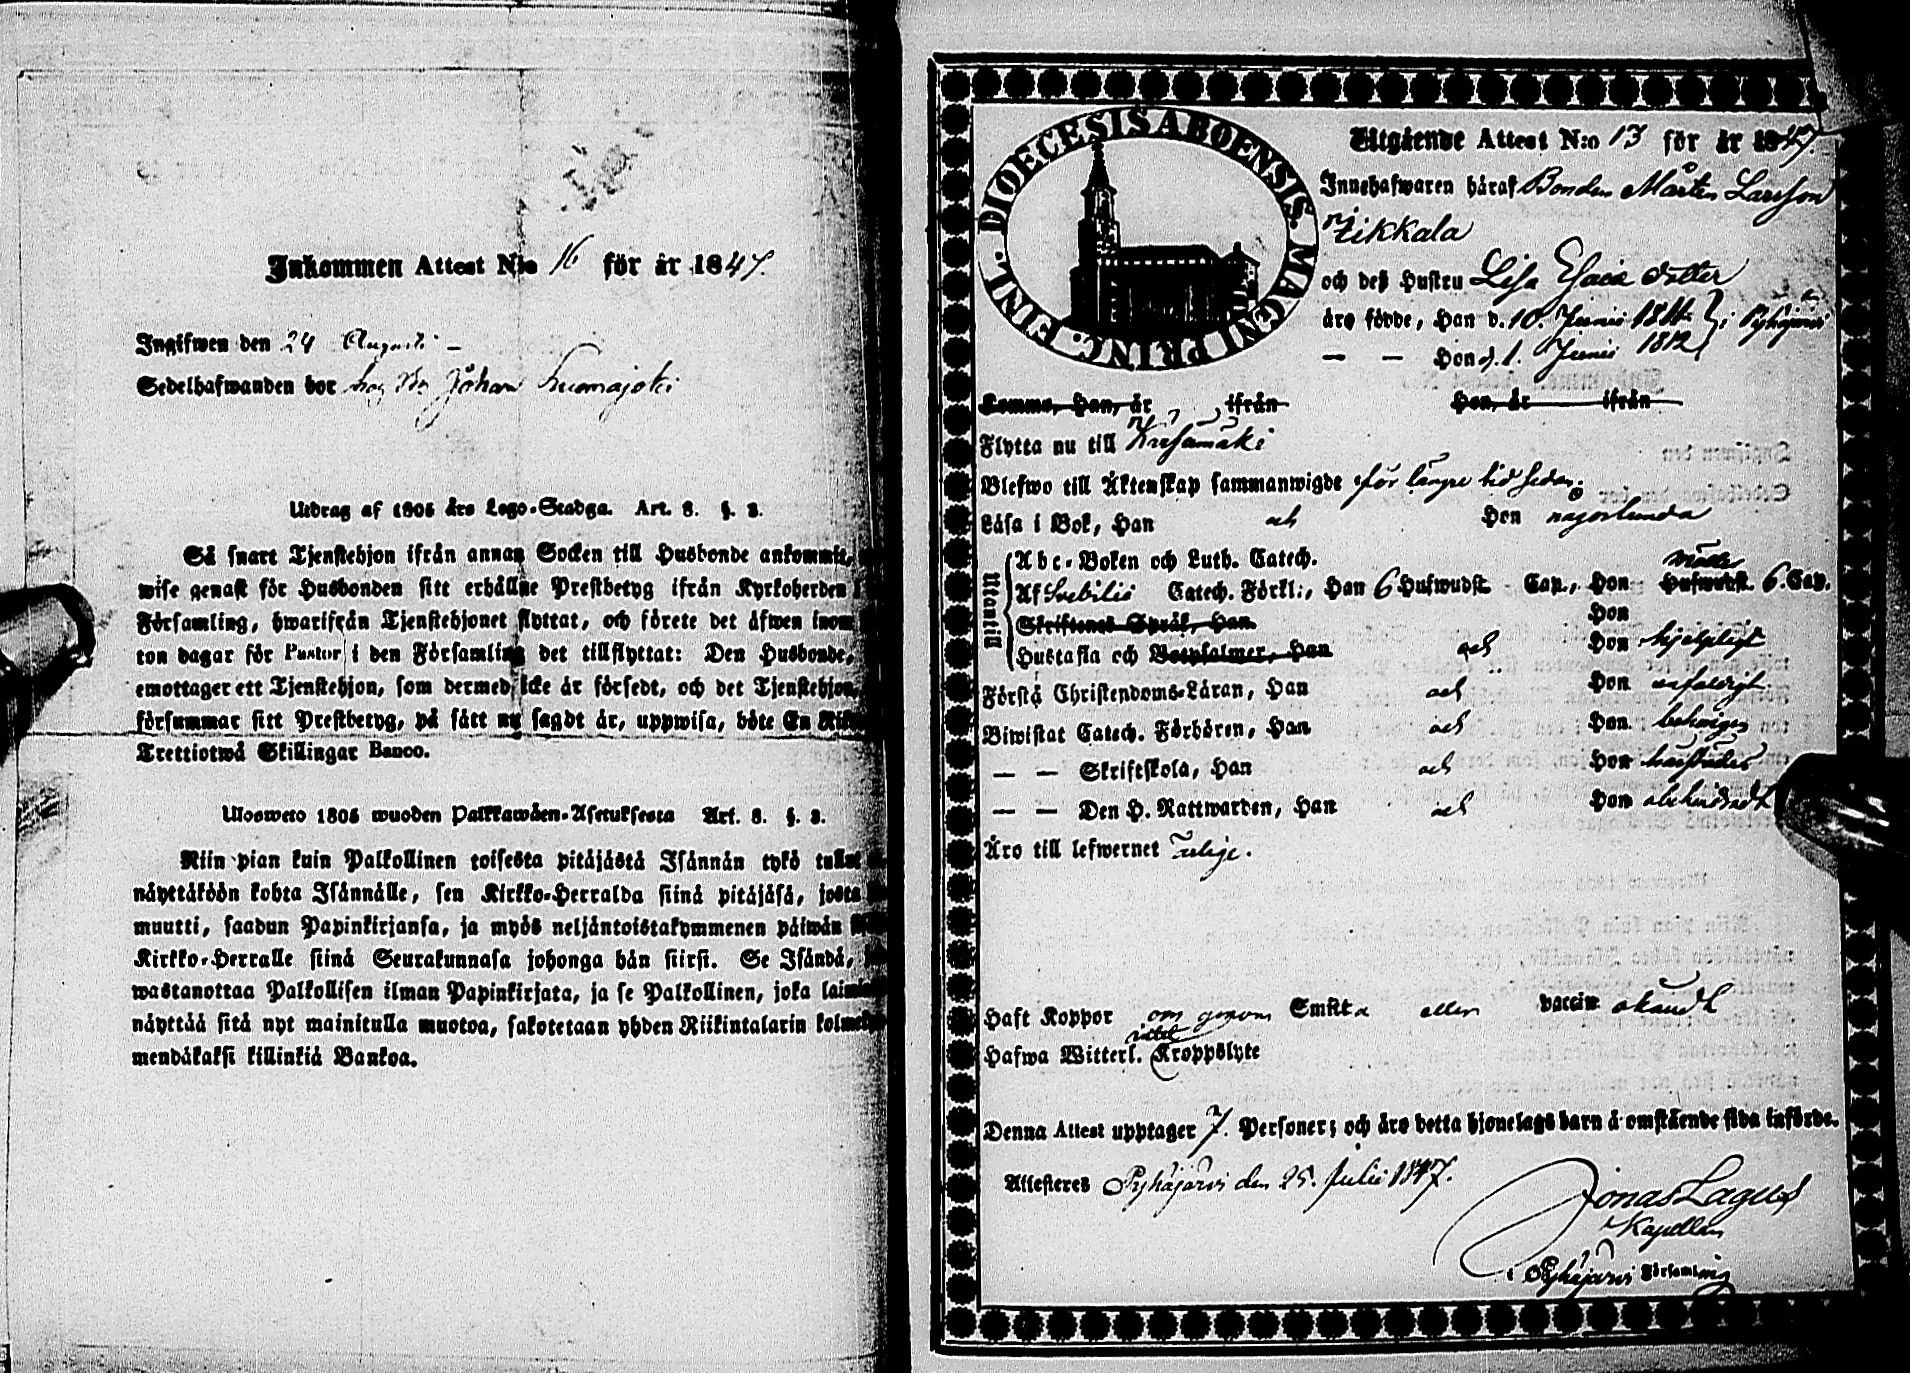 Inkommen Attest N:o 16 för år 1847.
Ingifwen den 24 Augusti
Sedelhafwanden bor hos Johan
Utdrag af 1805 års Lego-Stadga. Art. 8. §. 3.
Så snart Tjenstehjon ifrån annan Socken till Husbonde ankommit,
wise genast för Husbonden sitt erhållne Prestbetyg ifrån Kyrkoherden i
Församling, hwarifrån Tjenstehjonet flyttat, och förete det äfwen inom
ton dagar för Pastor i den Församling det tillflyttat: Den Husbonde,
emottager ett Tjenstehjon, som dermed icke är försedt, och det Tjenstehjon,
försummar sitt Prestbetyg, på sätt nu sagdt är, uppwisa, böte En
Trettiotwå Skillingar Banco.
Ulosweto 1805 wuoden Palkkawäen-Asetuksesta Art. 8. §. 3.
Niin pian kuin Palkollinen toisesta pitäjästä Isännän tykö tullut
näyttäköön kohta Isännälle, sen Kirkko-Herralda siinä pitäjäsä, josta
muutti, saadun Papinkirjansa, ja myös neljäntoistakymmenen päiwän
Kirkko-Herralle siinä Seurakunnasa johonga hän siirsi. Se Isändä,
wastanottaa Palkollisen ilman Papinkirjata, ja se Palkollinen, joka
näyttää sitä nyt mainitulla muotoa, sakotetaan yhden Riikintalarin
mendäkaksi killinkiä Bankoa.
DIOECESIS ABOENSIS. MAGNI PRINC. FINL.
Utgående Attest N:o 13 för år 1847.
Innehafwaren häraf Bonden Mårten Larsson
Tikkala
och deß Hustru Lisa Esaias dotter
äro födde, Han d. 10. Junii 1811. i Pyhäjärvi
— — Hon d. 1. Junii 1812
Komme, Han, år ifrån Hon, år ifrån
Flytta nu till Kärsämäki
Blefwo till Äktenskap sammanwigde för längre tid sedan.
Läsa i Bok, Han och Hon någorlunda
Utantill
Abc-Boken och Luth. Catech.
Af Svebilii Catech. Förkl:, Han 6 Hufwudst. Cap., Hon Hufwudst. 6. Cap.
Skriftenes Språk, Han Hon
Hustafla och Botpsalmer, Han och Hon hjelpligt
Förstå Christendoms-Läran, Han och Hon enfaldigt
Biwistat Catech. Förhören, Han och Hon behörigen
— — Skriftskola, Han och Hon
— — Den H. Nattwarden, Han och Hon
Äro till lefwernet ärlige.
Haft Koppor om genom Smitta eller vaccin okändt
Hafwa Witterl. intet Kroppslyte
Denna Attest upptager 7. Personer; och äro detta hjonelags barn å omstående sida införde.
Attesteres Pyhäjärvi den 25. Julii 1847.
Jonas Lagus
Kapellan
i Pyhäjärvi Församling